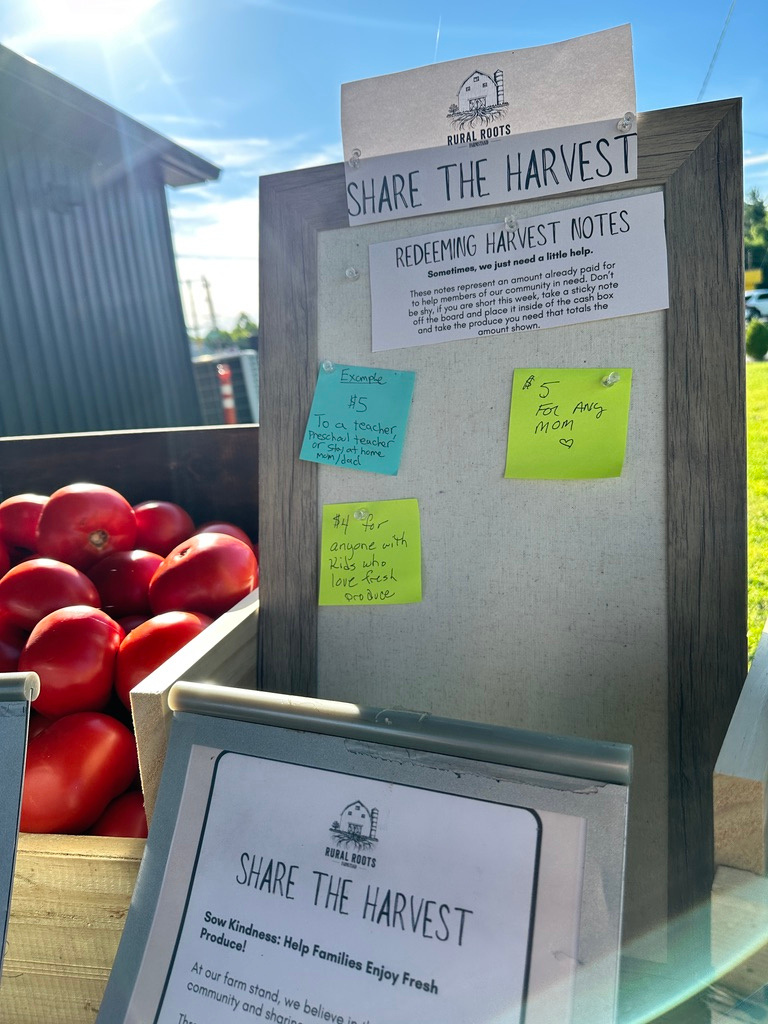 RURAL ROOTS
FARMSTAND
SHARE THE HARVEST
REDEEMING HARVEST NOTES
Sometimes, we just need a little help.
These notes represent an amount already paid for
to help members of our community in need. Don't
be shy, if you are short this week, take a sticky note
off the board and place it inside of the cash box
and take the produce you need that totals the
amount shown.
Example
$5
To a teacher,
Preschool teacher,
or stay at home
mom/dad
$5
FOR ANY
MOM
$4 for
anyone with
kids who
love fresh
produce
RURAL ROOTS
FARMSTAND
SHARE THE HARVEST
Sow Kindness: Help Families Enjoy Fresh
Produce!
At our farm stand, we believe in
community and sharing